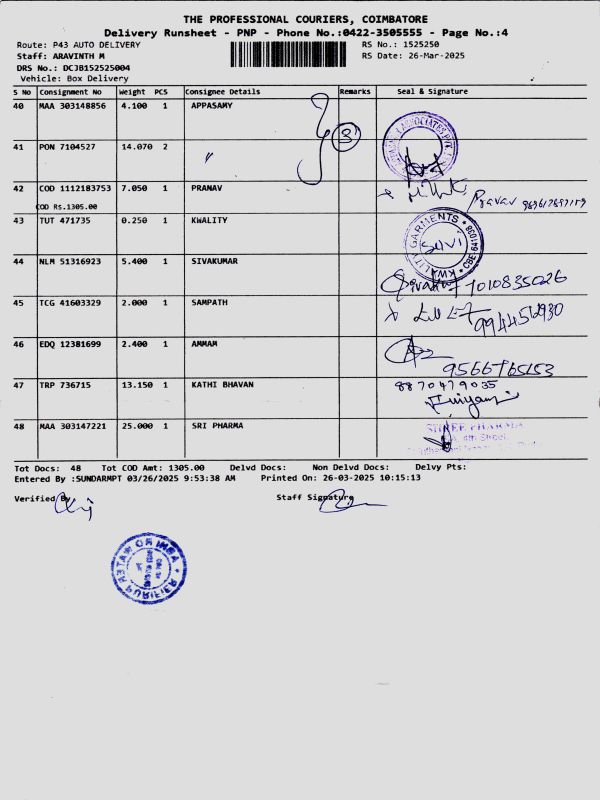 THE PROFESSIONAL COURIERS, COIMBATORE
Delivery Runsheet - PNP - Phone No.:0422-3505555 - Page No.:4
Route: P43 AUTO DELIVERY RS No.: 1525250
Staff: ARAVINTH M RS Date: 26-Mar-2025
DRS No.: DCJB152525004
Vehicle: Box Delivery
S No Consignment No Weight PCS Consignee Details Remarks Seal & Signature
40 MAA 303148856 4.100 1 APPASAMY
3
41 PON 7104527 14.070 2 "
42 COD 1112183753 7.050 1 PRANAV Pranav
COD Rs.1305.00
43 TUT 471735 0.250 1 KWALITY KWALITY GARMENTS
44 NLM 51316923 5.400 1 SIVAKUMAR 7010835026
45 TCG 41603329 2.000 1 SAMPATH
46 EDQ 12381699 2.400 1 AMMAM
47 TRP 736715 13.150 1 KATHI BHAVAN 8870479035
48 MAA 303147221 25.000 1 SRI PHARMA SHREE PHARMA
Tot Docs: 48 Tot COD Amt: 1305.00 Delvd Docs: Non Delvd Docs: Delvy Pts:
Entered By :SUNDARMPT 03/26/2025 9:53:38 AM Printed On: 26-03-2025 10:15:13
Verified By Staff Signature